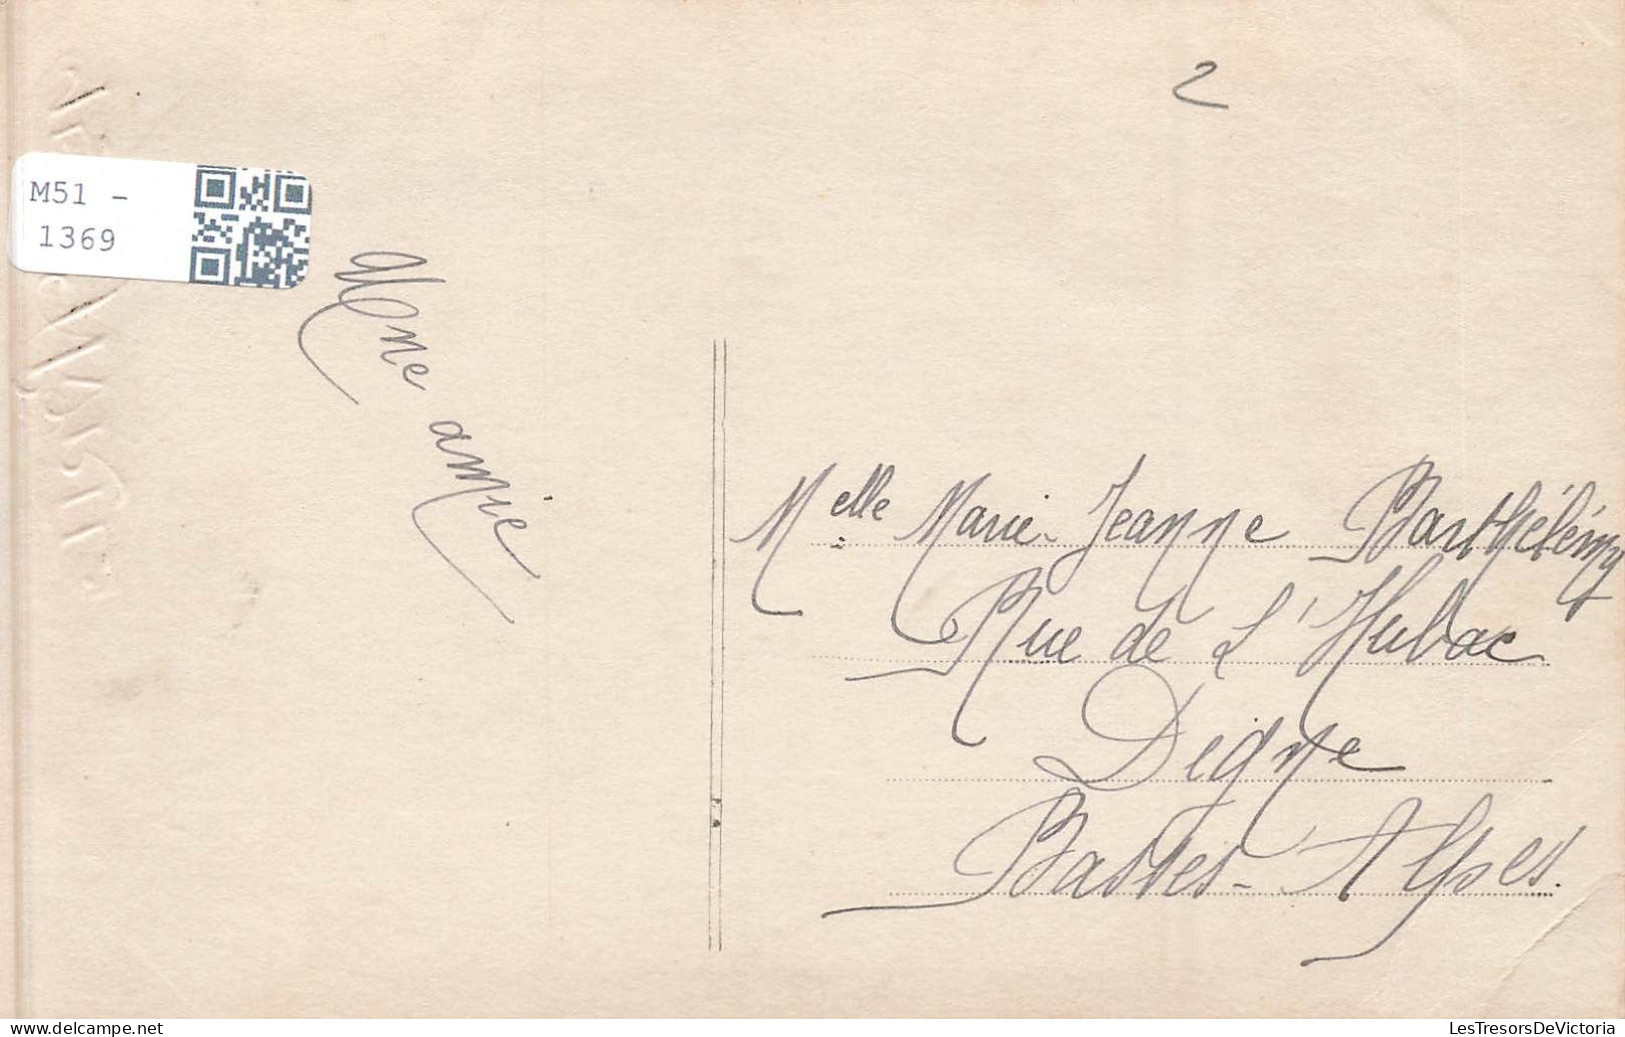 2
M51 -
1369
Une amie
Melle Marie-Jeanne Barthélémy
Rue de L'Hubac
Digne
Basses-Alpes.
www.delcampe.net
LesTresorsDeVictoria